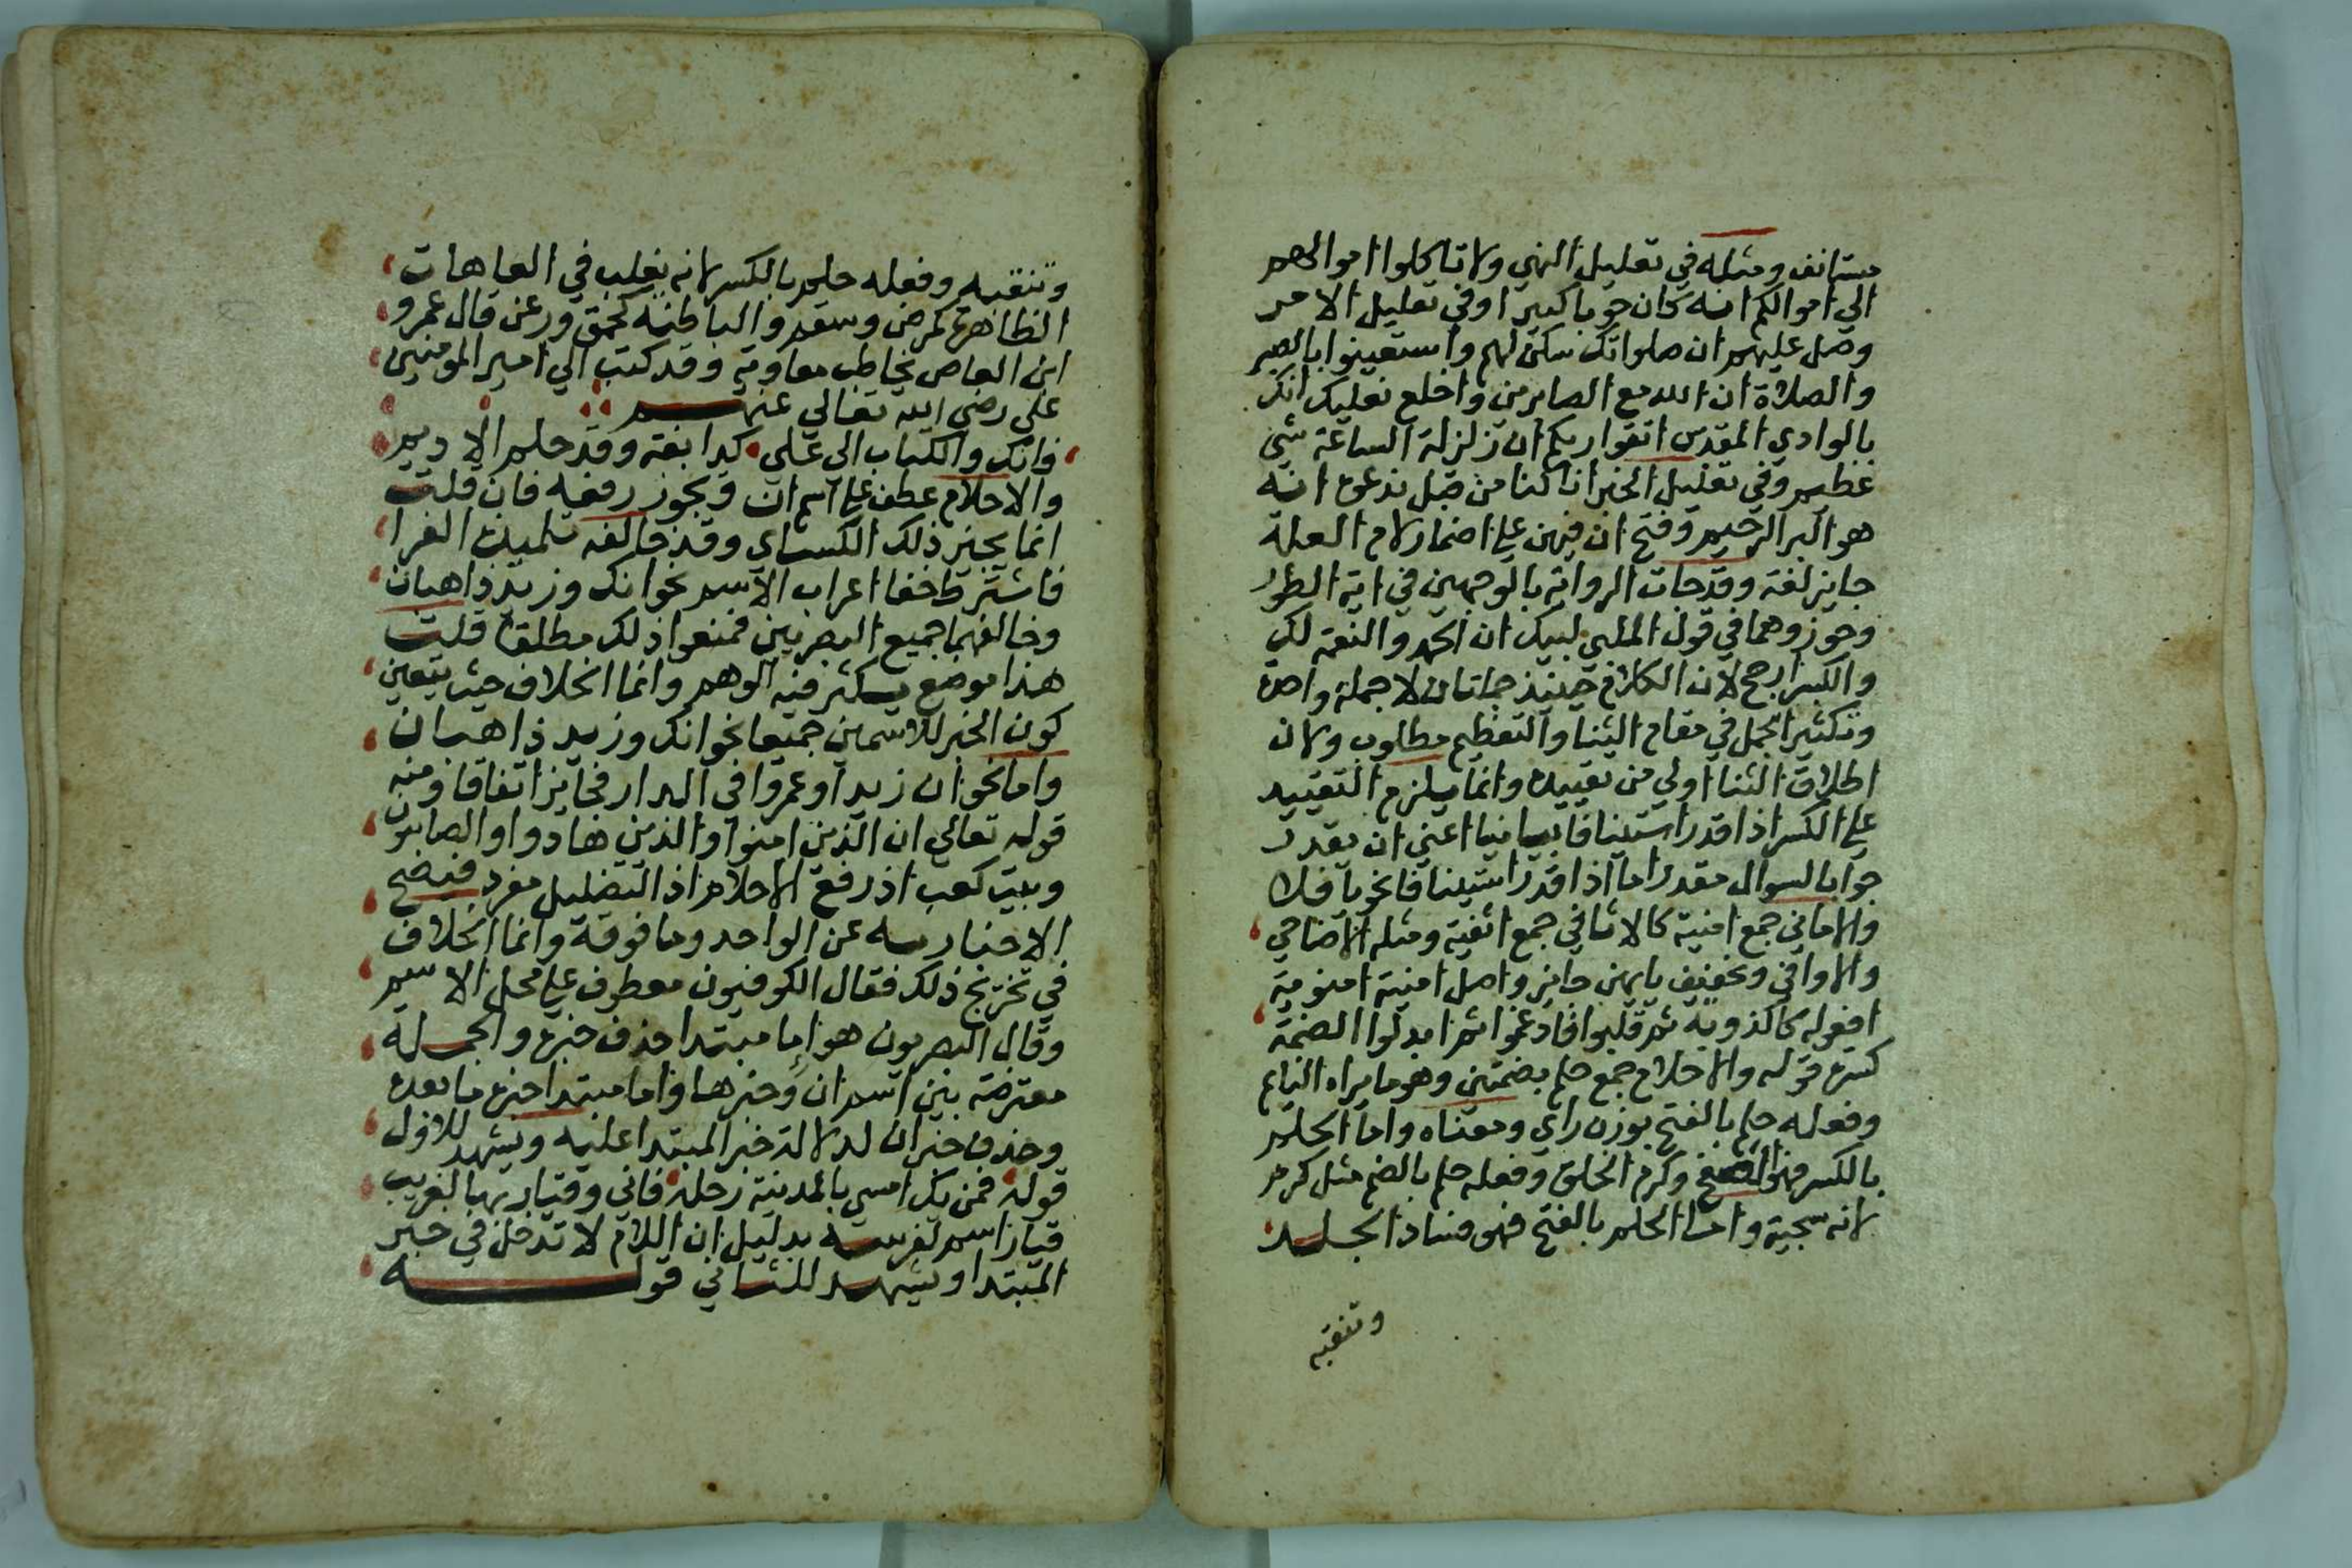 مستانف ومثله في تعليل النهي ولا تاكلوا اموالهم
الي اموالكم انه كان حوبا كبيرا وفي تعليل الامر
وصل عليهم ان صلواتك سكن لهم واستعينوا بالصبر
والصلاة ان الله مع الصابرين واخلع نعليك انك
بالوادي المقدس اتقوا ربكم ان زلزلة الساعة شي
عظيم وفي تعليل الخبر انا كنا من قبل ندعوه انه
هو البر الرحيم وفتح ان فيهن علي اضمار لام العلة
جايز لغة وقد جات الرواية بالوجهين في اية الطور
وجوزوهما في قول الملبي لبيك ان الحمد والنعمة لك
والكسر ارجح لان الكلام حينيذ جملتان لا جملة واحدة
وتكثير الجمل في مقام الثنا والتعظيم مطلوب ولان
اطلاق الثنا اولي من تقييده وانما يلزم التقييد
علي الكسر اذا قدر استينافا بيانيا اعني ان يقدر
جوابا لسوال مقدر اما اذا قدر استينافا نحويا فلا
والاماني جمع امنية كالاثافي جمع اثفية ومثله الاضاحي
والاواقي وتخفيف يايهن جايز واصل امنية امنوية
افعوله كاكذوبة ثم قلبوا فادغموا ثم ابدلوا الضمة
كسرة قوله والاحلام جمع حلم بضمتين وهو ما يراه النايم
وفعله حلم بالفتح بوزن راي ومعناه واما الحلم
بالكسر فهو الصفح وكرم الخلق وفعله حلم بالضم مثل كرم
لانه سجية واما الحلم بالفتح فهو فساد الجلد
وتنقبه
وتنقبه وفعله حلم بالكسر لانه يغلب في العاهات
الظاهرة كمرض وسقم والباطنه كحمق ورعن قال عمرو
ابن العاص يخاطب معاوية وقد كتب الي امير المومنين
علي رضي الله تعالي عنهم
فانك والكتاب الي علي كدابغة وقد حلم الاديم
والاحلام عطف علي اسم ان ويجوز رفعه فان قلت
انما يجيز ذلك الكساي وقد خالفه تلميذه الفرا
فاشترط خفا اعراب الاسم نحو انك وزيد ذاهبان
وخالفهما جميع البصريين فمنعوا ذلك مطلقا قلت
هذا موضع يكثر فيه الوهم وانما الخلاف حيث يتعين
كون الخبر للاسمين جميعا نحو انك وزيد ذاهبان
واما نحو ان زيدا وعمروا في الدار فجايز اتفاقا ومنه
قوله تعالي ان الذين امنوا والذين هادوا والصابيون
وبيت كعب اذ رفع الاحلام اذ التضليل مفرد فيصح
الاخبار به عن الواحد وما فوقه وانما الخلاف
في تخريج ذلك فقال الكوفيون معطوف علي محل الاسم
وقال البصريون هو اما مبتدا حذف خبره والجملة
معترضة بين اسم ان وخبرها واما مبتدا خبره ما بعده
وحذف خبر ان لدلالة خبر المبتدا عليه ويشهد للاول
قوله فمن يك امسي بالمدينة رحله فاني وقيار بها لغريب
قيار اسم لفرسه بدليل ان اللام لا تدخل في خبر
المبتدا ويشهد للثاني قوله